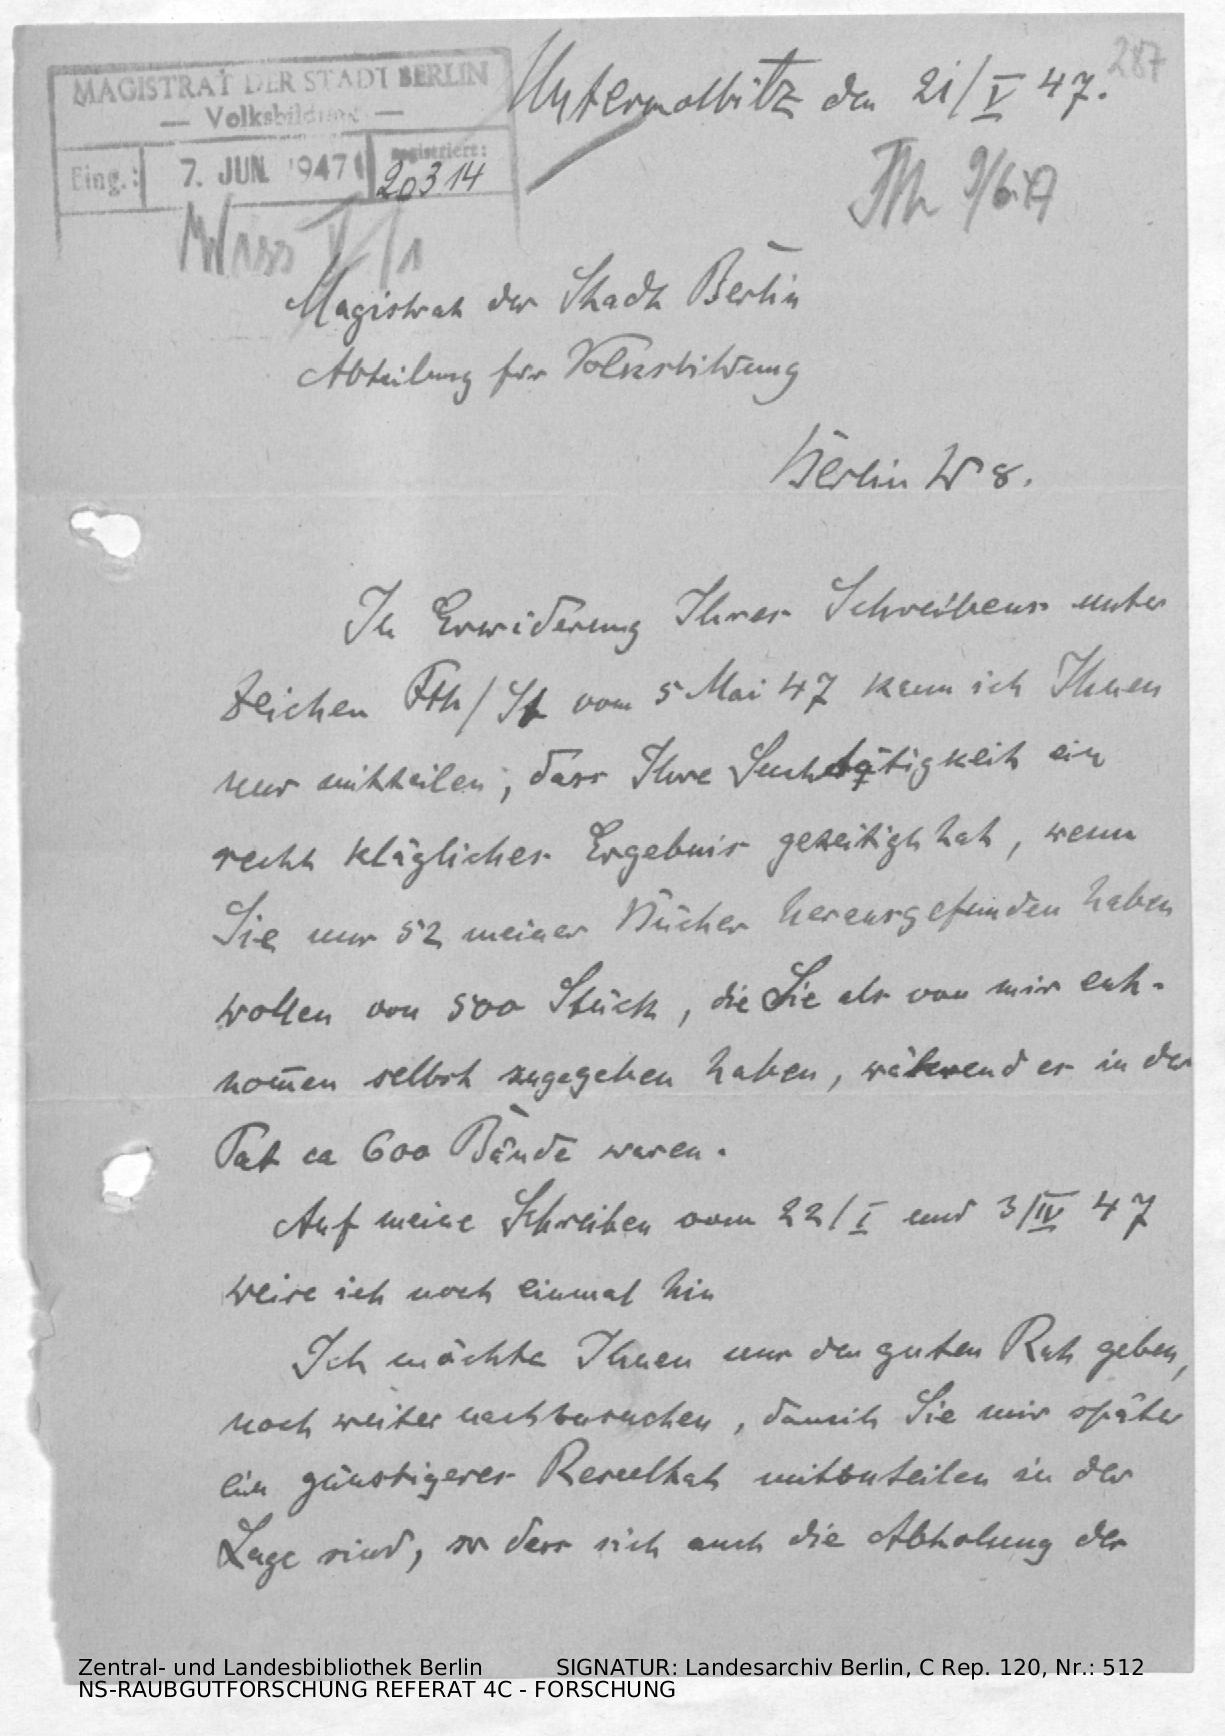 287
MAGISTRAT DER STADT BERLIN
— Volksbildung —
Eing.: 7. JUN. 1947 registriert: 20314
Untermolbitz den 21/V 47.
Th 9/6.47
Wiss V/1
Magistrat der Stadt Berlin
Abteilung für Volksbildung
Berlin W 8.
In Erwiderung Ihres Schreibens unter
Zeichen Fth/St vom 5 Mai 47 kann ich Ihnen
nur mitteilen, dass Ihre Suchtätigkeit ein
recht klägliches Ergebnis gezeitigt hat, wenn
Sie nur 52 meiner Bücher herausgefunden haben
wollen von 500 Stück, die Sie als von mir ent-
nom̄en selbst zugegeben haben, während es in der
Tat ca 600 Bände waren.
Auf meine Schreiben vom 22/I und 3/IV 47
weise ich noch einmal hin
Ich möchte Ihnen nur den guten Rat geben,
noch weiter nachzusuchen, damit Sie mir später
ein günstigeres Resultat mitzuteilen in der
Lage sind, so dass sich auch die Abholung der
Zentral- und Landesbibliothek Berlin SIGNATUR: Landesarchiv Berlin, C Rep. 120, Nr.: 512
NS-RAUBGUTFORSCHUNG REFERAT 4C - FORSCHUNG